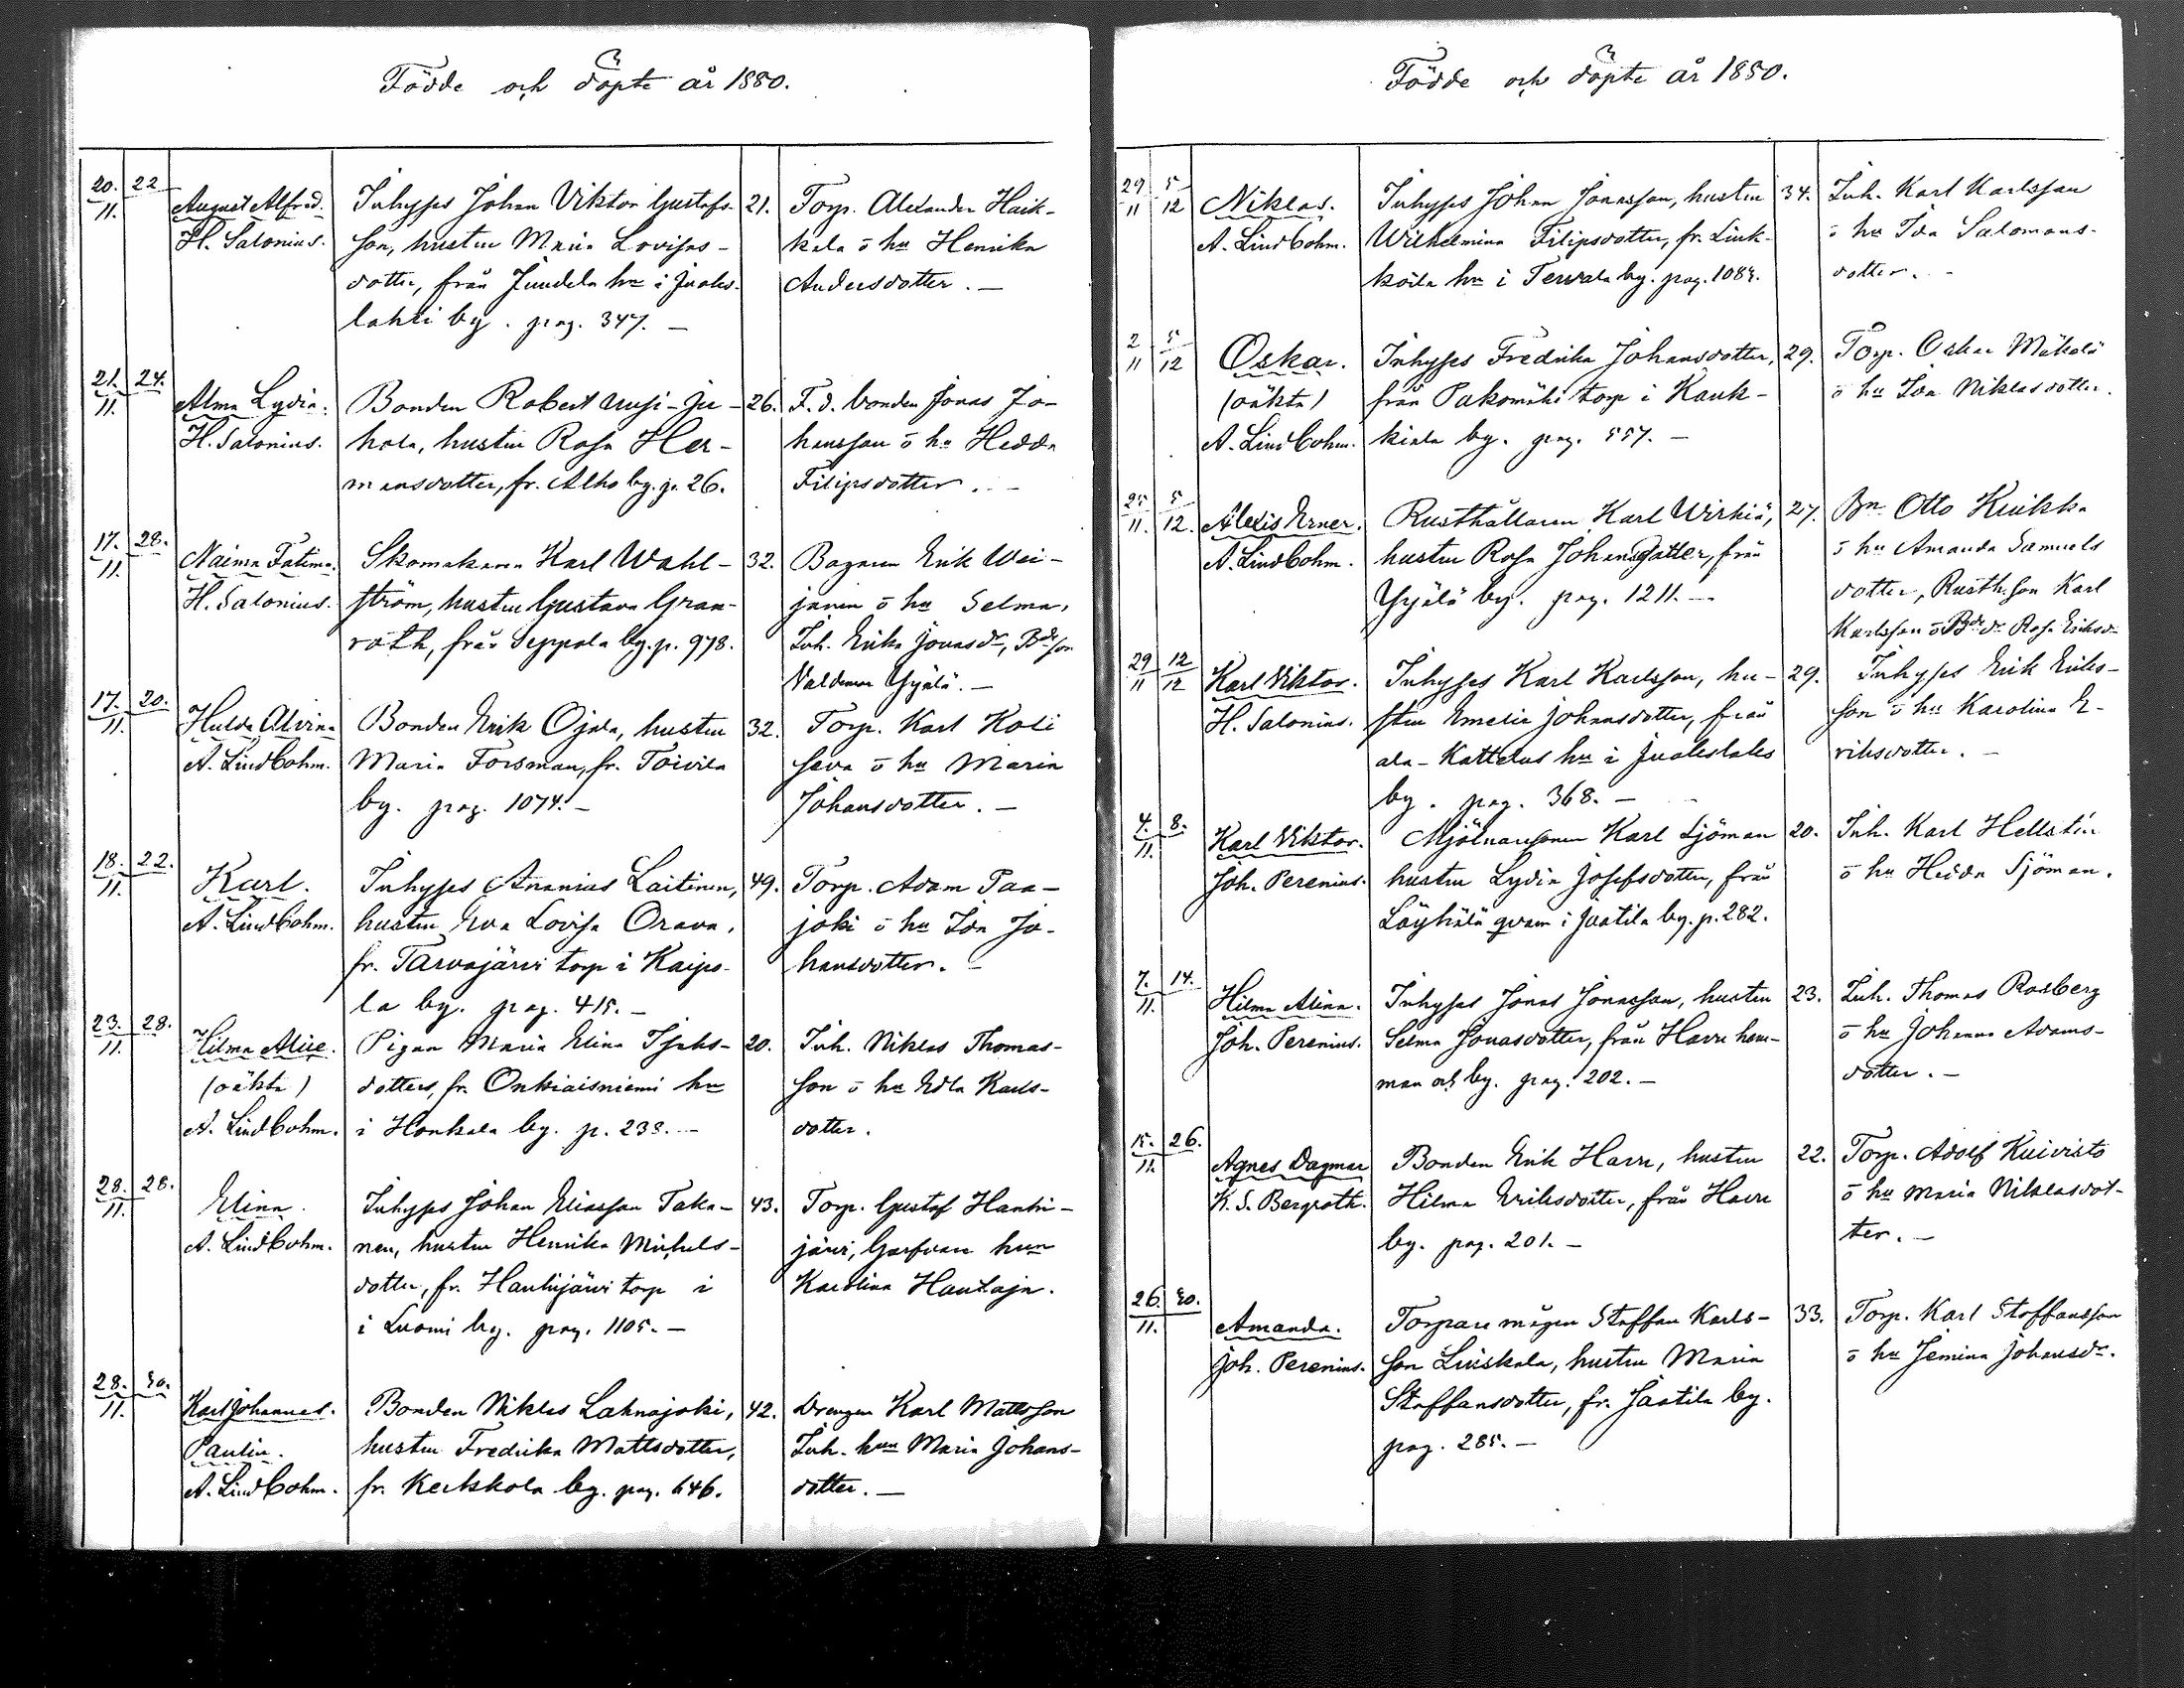 Födde och döpte år 1880.
20. 22
11.
August Alfred.
H. Salonius.
Inhyses Johan Viktor Gustafs-
son, hustru Maria Lovisas-
dotter, från Jundela hn i Juoks-
lahti by. pag. 347. —
21.
Torp. Alexander Haik-
kala o hu Henrika
Andersdotter. —
21. 24.
11.
Alma Lydia.
H. Salonius.
Bonden Robert Uusi-Ju-
hola, hustru Rosa Her-
mansdotter, fr. Alho by. p. 26.
26.
F. d. bonden Jonas Jo-
hansson o hu Hedda
Filipsdotter. —
17. 28.
11.
Naima Fatima.
H. Salonius.
Skomakaren Karl Wahl-
ström, hustru Gustava Gran-
roth, från Seppola by. p. 978.
32.
Bagaren Erik Wei-
janen o hu Selma,
Inh. Erika Jonasdr, Bdeson
Valdemar Yijälä. —
17. 20.
11.
Hulda Alvina
A. Lindbohm.
Bonden Erik Ojala, hustru
Maria Forsman, fr. Toivila
by. pag. 1074. —
32.
Torp. Karl Koli
sava o hu Maria
Johansdotter. —
18. 22.
11.
Karl.
A. Lindbohm.
Inhyses Ananias Laitinen,
hustru Eva Lovisa Orava,
fr. Tarvajärvi torp i Kaipo-
la by. pag. 415. —
49.
Torp. Adam Paa-
joki o hu Ida Jo-
hansdotter. —
23. 28.
11.
Hilma Alice.
(oäkta)
A. Lindbohm.
Pigan Maria Elina Isaks-
dotters, fr. Onkiaisniemi hn
i Honkola by. p. 233. —
20.
Inh. Niklas Thomas-
son o hu Edla Karls-
dotter.
28. 28.
11.
Elina.
A. Lindbohm.
Inhyses Johan Eliasson Taka-
nen, hustru Henrika Michels-
dotter, fr. Hanhijärvi torp i
i Luomi by. pag. 1105. —
43.
Torp. Gustaf Hanhi-
järvi, Garfvare hun
Karolina Hautaja.
28. 30.
11.
Karl Johannes.
Paulin.
A. Lindbohm.
Bonden Niklas Lahnajoki,
hustru Fredrika Mattsdotter,
fr. Kerkkola by. pag. 646.
42.
Drengen Karl Mattsson
Inh. hun Maria Johans-
dotter. —
Födde och döpte år 1880.
29 5
11 12
Niklas.
A. Lindbohm.
Inhyses Johan Jonasson, hustru
Wilhelmina Filipsdotter, fr. Liuk-
koila hn i Tervala by. pag. 1084.
34.
Inh. Karl Karlsson
o hu Ida Salomons-
dotter. —
2 5
11 12
Oskar.
(oäkta)
A. Lindbohm.
Inhyses Fredrika Johansdotter,
från Pakomäki torp i Kauk-
kiala by. pag. 557. —
29.
Torp. Oskar Mäkelä
o hu Ida Niklasdotter.
25 5
11. 12.
Alexis Erner.
A. Lindbohm.
Rusthållaren Karl Wirkiä,
hustru Rosa Johansdotter, från
Yijälä by. pag. 1211. —
27.
Bn Otto Kuikka
o hu Amanda Samuels
dotter, Rusth.son Karl
Karlsson o Bde dr Rosa Eriksdr
29 12
11 12
Karl Viktor.
H. Salonius.
Inhyses Karl Karlsson, hu-
stru Emelie Johansdotter, från
ala-Kattelus hn i Juokslaks
by. pag. 368. —
29.
Inhyses Erik Eriks-
son o hu Karolina E-
riksdotter. —
4. 8.
11.
Karl Viktor.
Joh. Perenius.
Mjölnarsonen Karl Sjöman
hustru Lydia Josefsdotter, från
Löyhälä qvarn i Jaatila by. p. 282.
20.
Inh. Karl Hellstén
o hu Hedda Sjöman.
7. 14.
11.
Hilma Alina.
Joh. Perenius.
Inhyses Jonas Jonasson, hustru
Selma Jonasdotter, från Havu hem-
man och by. pag. 202. —
23.
Inh. Thomas Rosberg
o hu Johanna Adams-
dotter. —
15. 26.
11.
Agnes Dagmar
K. S. Bergroth.
Bonden Erik Havu, hustru
Hilma Eriksdotter, från Havu
by. pag. 201. —
22.
Torp. Adolf Kuivisto
o hu Maria Niklasdot-
ter. —
26. 30.
11.
Amanda.
Joh. Perenius.
Torpare mågen Staffan Karls-
son Liiskala, hustru Maria
Staffansdotter, fr. Jaatila by.
pag. 285. —
33.
Torp. Karl Staffansson
o hu Jemina Johansdr.